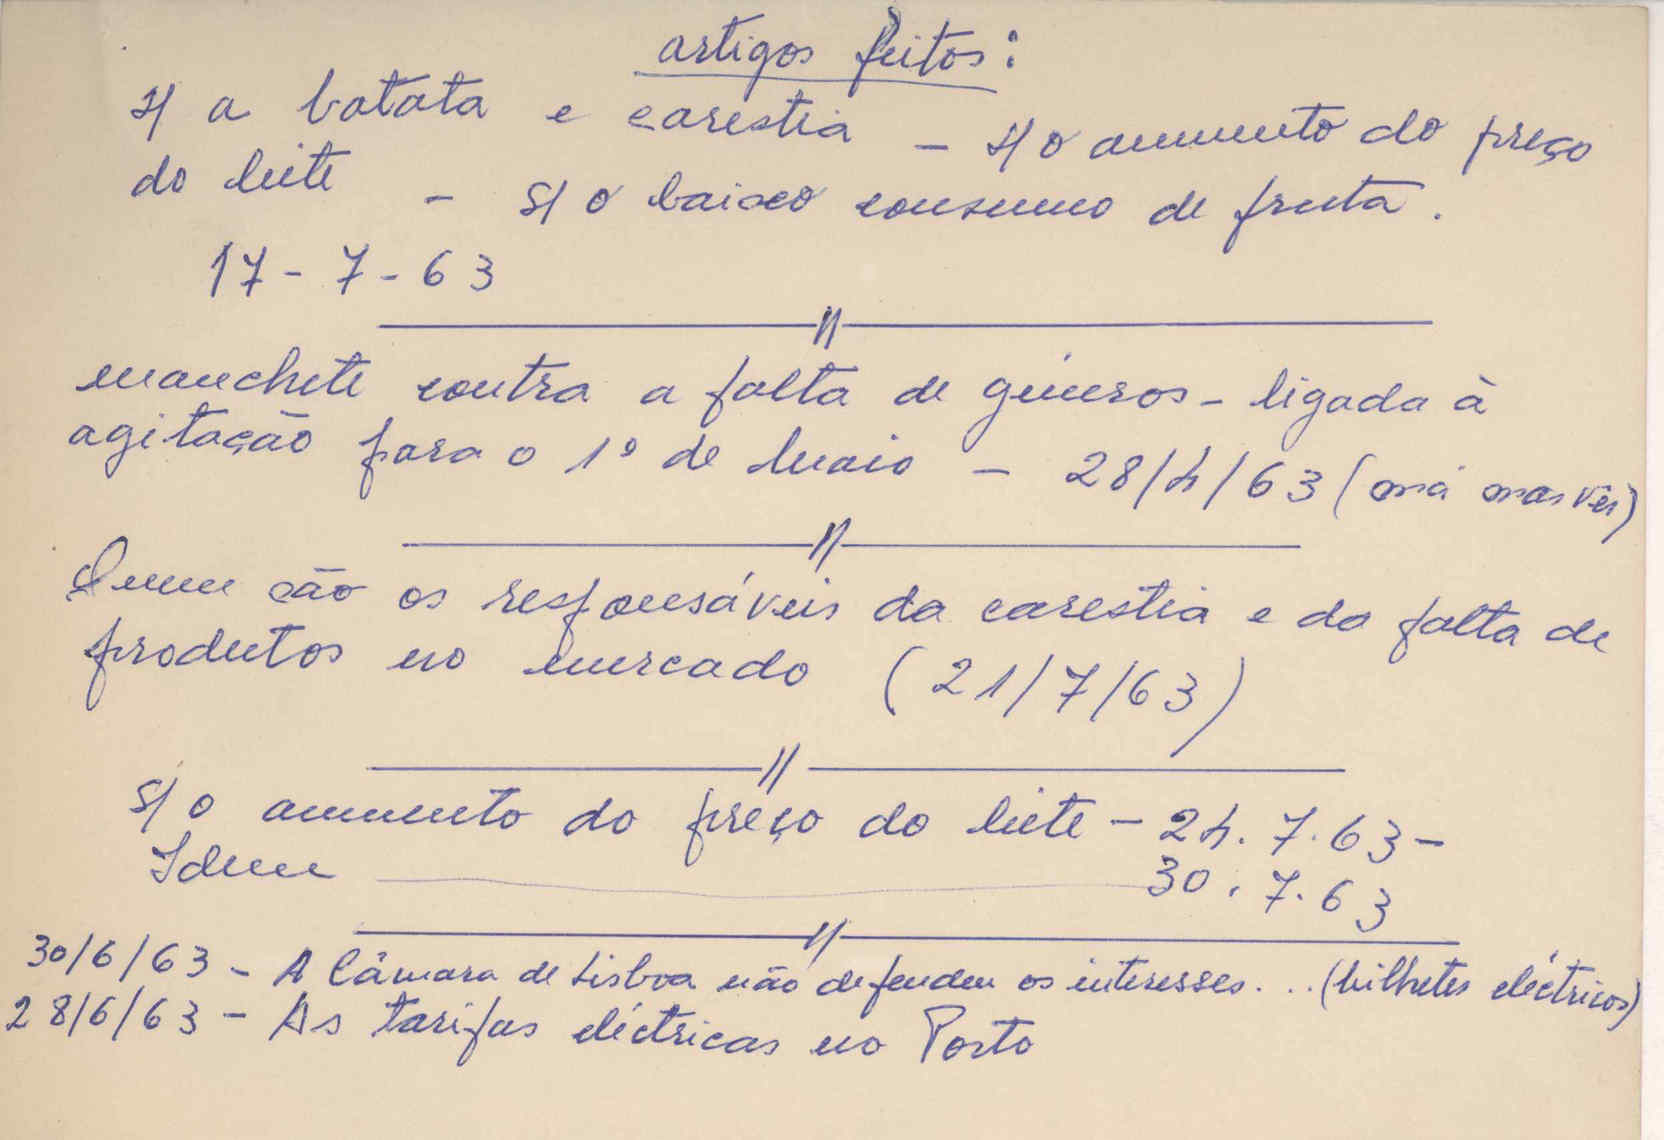 artigos feitos:
s/ a batata e carestia – s/ o aumento do preço
do leite – s/ o baixo consumo de fruta.
17-7-63
manchete contra a falta de géneros – ligada à
agitação para o 1º de Maio – 28/4/63 (má mas vês)
Quem são os responsáveis da carestia e da falta de
produtos no mercado (21/7/63)
s/ o aumento do preço do leite – 24.7.63 –
Idem 30.7.63
30/6/63 – A Câmara de Lisboa não defendeu os interesses... (bilhetes eléctricos)
28/6/63 – As tarifas eléctricas no Porto